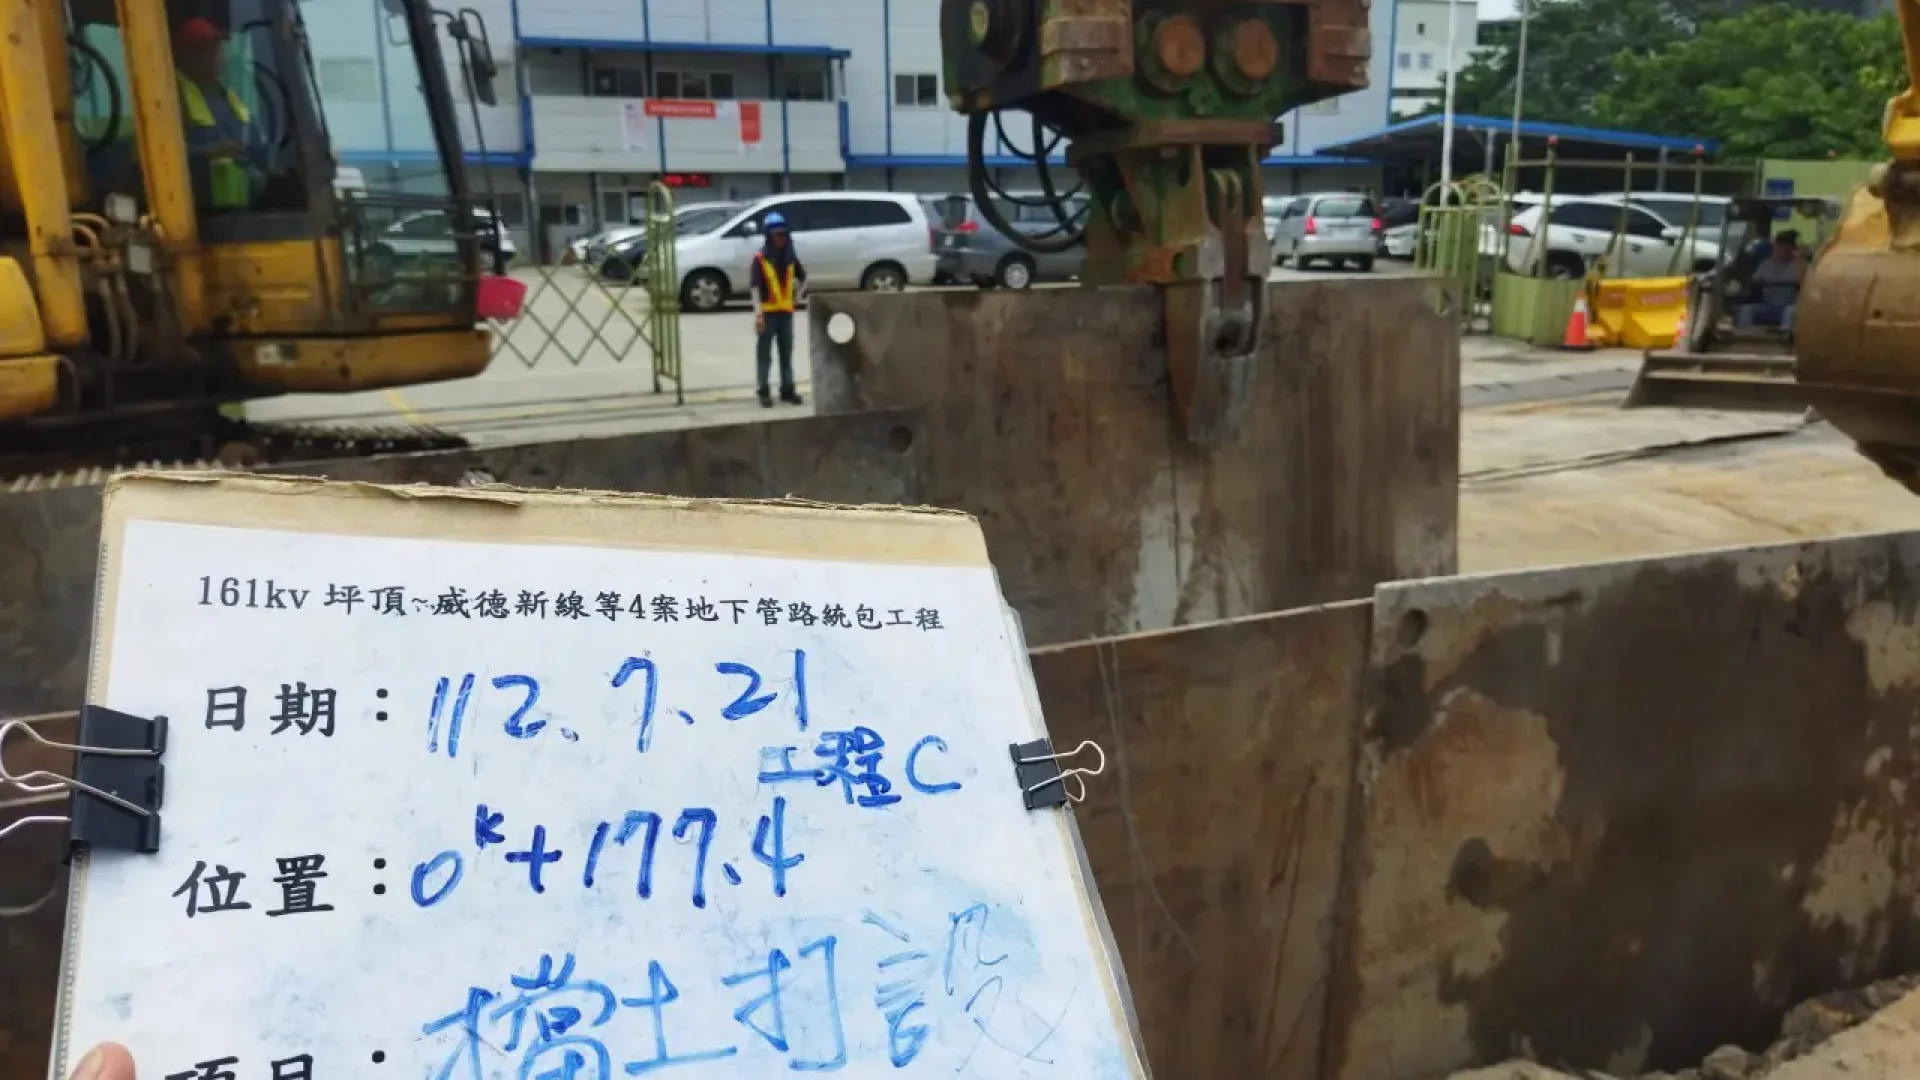 161kv 坪頂~威德新線等4案地下管路統包工程
日期：112.7.21
工程C
位置：0K+177.4
項目：擋土打設